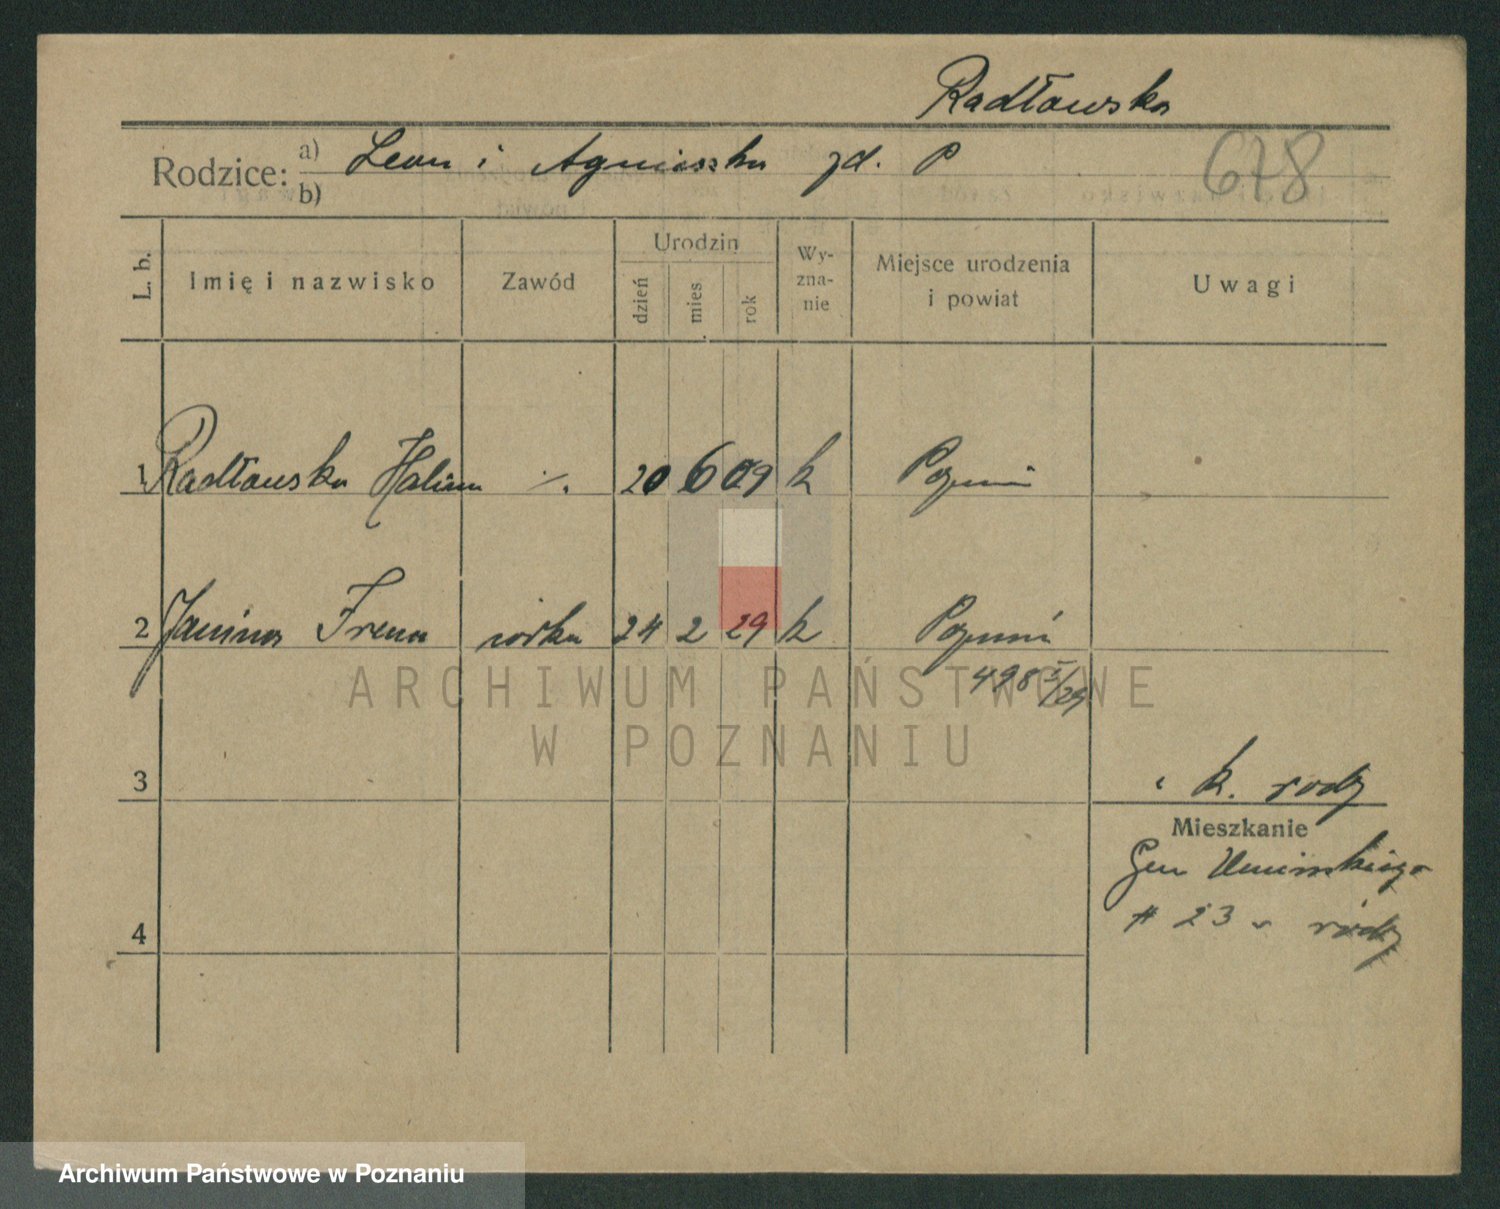 Radławska
Rodzice: a) Leon i Agnieszka zd. P
b)
678
L. b. Imię i nazwisko Zawód Urodzin dzień mies rok Wy-zna-nie Miejsce urodzenia i powiat Uwagi
1 Radławska Halina ·/. 20 6 09 k Poznań
2 Janina Irena córka 24 2 29 k Poznań
498 I/29
ARCHIWUM PAŃSTWOWE
W POZNANIU
3
i k. rodz
Mieszkanie
Gen Umińskiego
# 23 u rodz
4
Archiwum Państwowe w Poznaniu